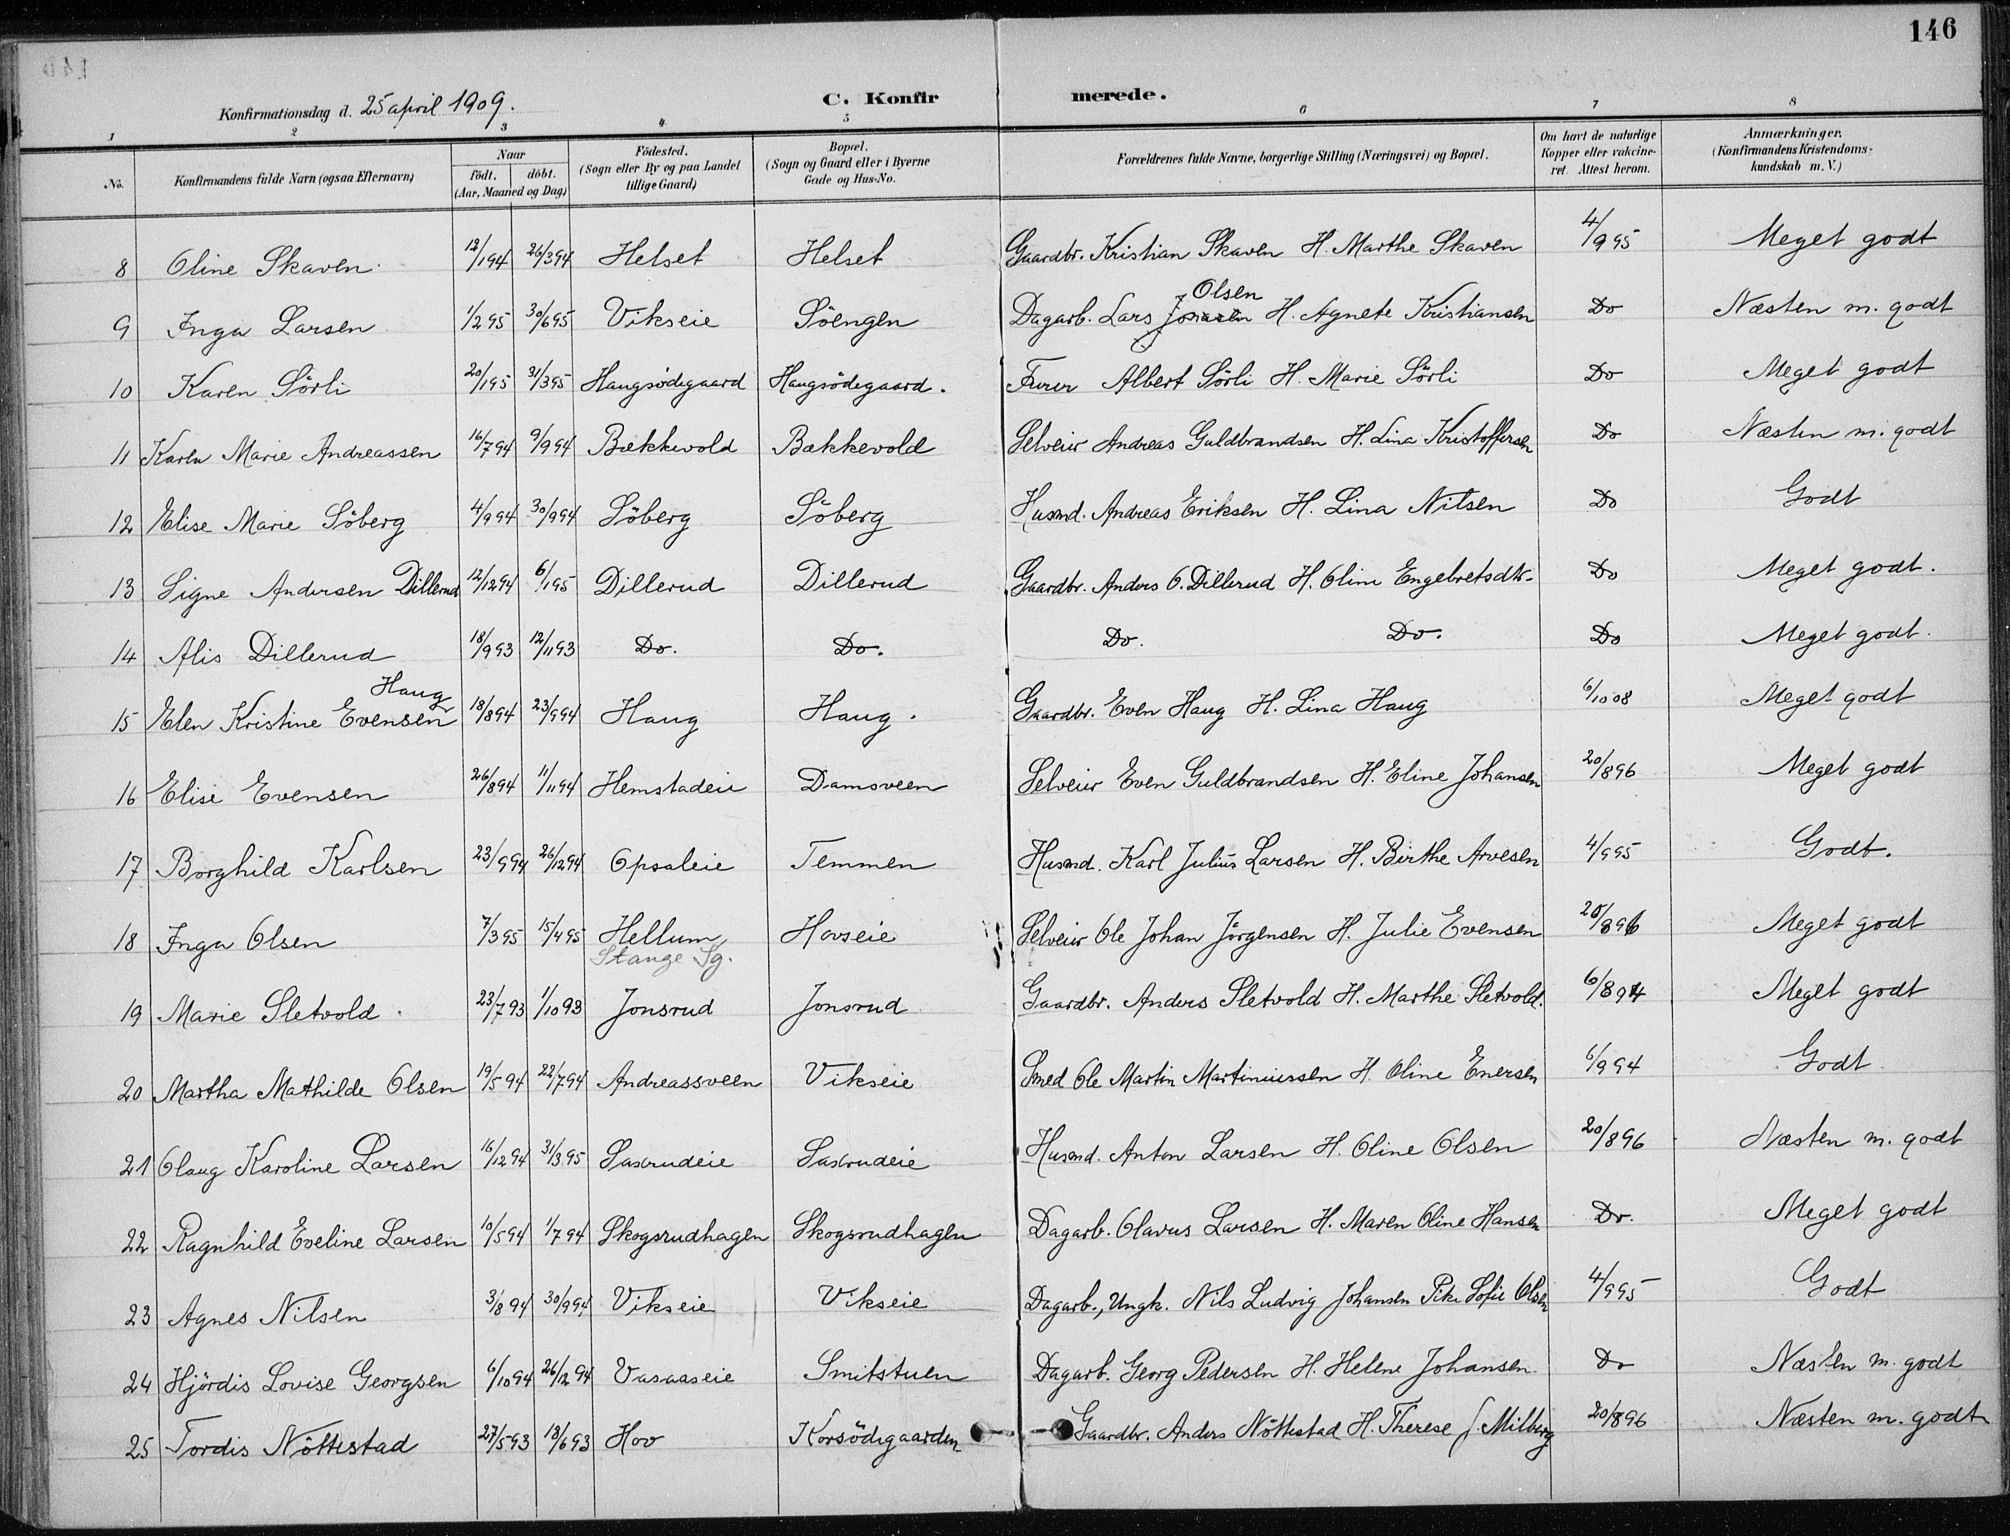 146
Konfirmationsdag d. 25 april 1909.
C. Konfir merede.
1 2 3 4 5 6 7 8
No. Konfirmandens fulde Navn (ogsaa Efternavn) Naar født. døbt. (Aar, Maaned og Dag) Fødested. (Sogn eller By og paa Landet tillige Gaard) Bopæl. (Sogn og Gaard eller i Byerne Gade og Hus-No. Forældrenes fulde Navne, borgerlige Stilling (Næringsvei) og Bopæl. Om havt de naturlige Kopper eller vakcineret. Attest herom. Anmærkninger. (Konfirmandens Kristendomskundskab m. V.)
8 Oline Skaven 12/1 94 26/3 94 Helset Helset Gaardbr. Kristian Skaven H. Marthe Skaven 4/9 95 Meget godt
9 Inga Larsen 1/2 95 30/6 95 Vikseie Söengen Dagarb. Lars Jonasen Olsen H. Agnete Kristiansen Do Næsten m. godt
10 Karen Sörli 20/1 95 31/3 95 Haugsödegaard Haugsödegaard. Furer Albert Sörli H. Marie Sörli Do Meget godt
11 Karen Marie Andreassen 16/7 94 9/9 94 Bækkevold Bækkevold Selveier Andreas Guldbrandsen H. Lina Kristoffersen Do Næsten m. godt
12 Elise Marie Söberg 4/9 94 30/9 94 Söberg Söberg Husmd. Andreas Eriksen H. Lina Nilsen Do Godt
13 Signe Andersen Dillerud 12/12 94 6/1 95 Dillerud Dillerud Gaardbr. Anders O. Dillerud H. Oline Engebretsdtr. Do Meget godt.
14 Alis Dillerud 18/9 93 12/11 93 Do. Do. Do. Do. Do Meget godt.
15 Elen Kristine Evensen Haug 18/8 94 23/9 94 Haug Haug. Gaardbr. Even Haug H. Lina Haug 6/10 08 Meget godt
16 Elise Evensen 26/8 94 11/11 94 Hemstadeie Damsveen Selveier Even Guldbrandsen H. Eline Johansen 20/8 96 Meget godt
17 Borghild Karlsen 23/9 94 26/12 94 Opsaleie Temmen Husmd. Karl Julius Larsen H. Birthe Arvesen 4/9 95 Godt.
18 Inga Olsen 7/3 95 15/4 95 Hellum Stange Sg. Hovseie Selveier Ole Johan Jörgensen H. Julie Evensen 20/8 96 Meget godt
19 Marie Sletvold 23/7 93 1/10 93 Jonsrud Jonsrud Gaardbr. Anders Sletvold H. Marthe Sletvold. 6/8 94 Meget godt
20 Martha Mathilde Olsen 19/5 94 22/7 94 Andreassveen Vikseie Smed Ole Martin Martiniussen H. Oline Enersen 6/9 94 Godt
21 Olaug Karoline Larsen 16/12 94 31/3 95 Saxrudeie Saxrudeie Husmd. Anton Larsen H. Oline Olsen 20/8 96 Næsten m. godt
22 Ragnhild Eveline Larsen 10/5 94 1/7 94 Skogsrudhagen Skogsrudhagen Dagarb. Olavus Larsen H. Maren Oline Hansen Do. Meget godt
23 Agnes Nilsen 3/8 94 30/9 94 Vikseie Vikseie Dagarb., Ungk. Nils Ludvig Johansen Pike Sofie Olsen 4/9 95 Godt
24 Hjördis Lovise Georgsen 6/10 94 26/12 94 Vasaaseie Smitstuen Dagarb. Georg Pedersen H. Helene Johansen Do Næsten m. godt
25 Tordis Nöttestad 27/5 93 18/6 93 Hov Korsödegaarden Gaardbr. Anders Nöttestad H. Therese f. Milberg 20/8 96 Næsten m. godt